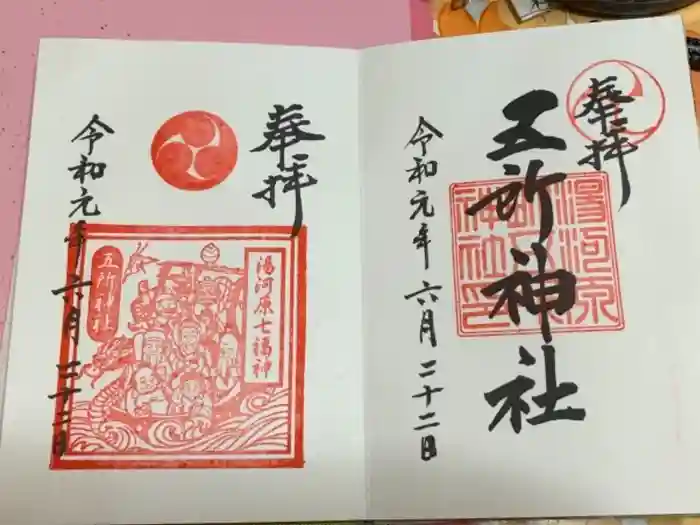 奉拝
五所神社
湯河原
五所神社印
令和元年六月二十二日
奉拝
湯河原七福神
五所神社
令和元年六月二十二日